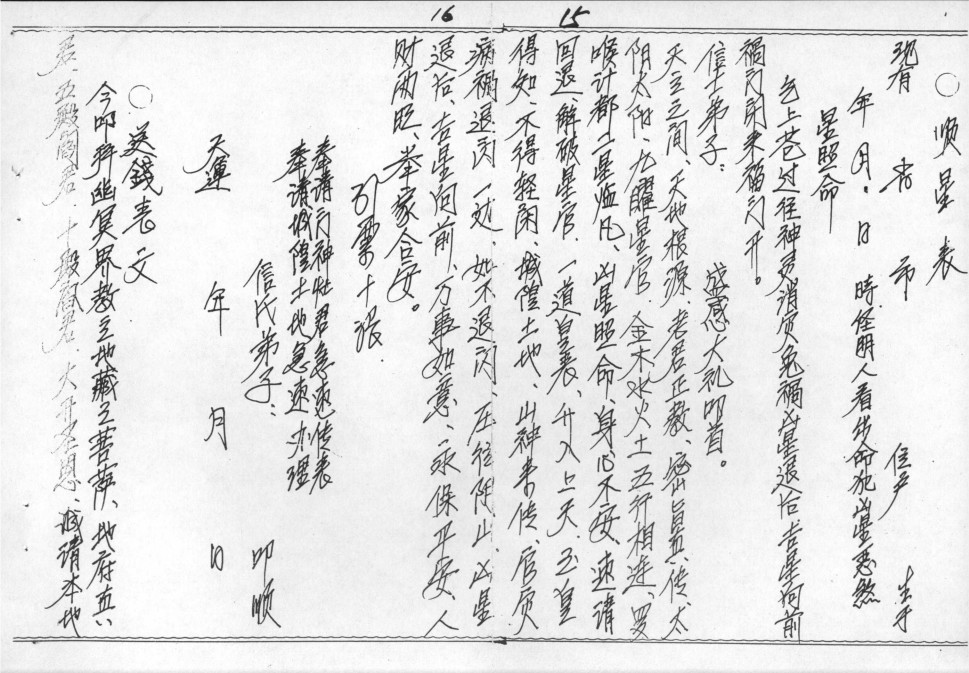 15
○顺星表
现有 省 市 住户 生于
年 月 日 時 经明人看出命犯凶星恶煞
星照命
乞上苍过往神灵消灾免祸凶星退后吉星向前
祸门闭来福门开。
信士弟子： 诚感大礼叩首。
天立之间、天地根源 老君正教、密旨亲传、太
阴太阳、九曜星官 金木水火土五行相连、罗
睺计都二星临凡、凶星照命身心不安、速请
回退、解破星官、一道皇表、升入上天 玉皇
得知、不得轻闲、城隍土地、山神来传、官灾
16
病祸退闪一边、如不退闪、压往 山、凶星
退后、吉星向前、万事如意、永保平安、人
财两旺、举家合安。
引票十张
奉请门神灶君急速传表
奉请城隍土地急速办理
信氏弟子： 叩顺
天運 年 月 日
○送錢表文
今叩拜幽冥界教主地藏王菩萨、地府五八
君五殿阎君 十殿阎君、大开圣恩、诚请本地